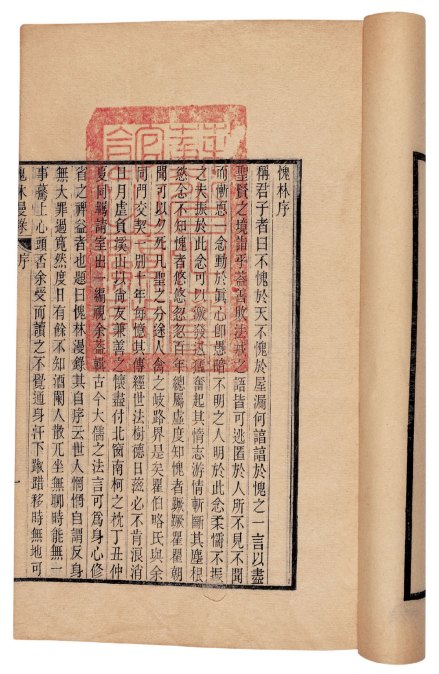 愧林序
稱君子者曰不愧於天不愧於屋漏何諳諳於愧之一言以盡
聖賢之境詣乎蓋善敗法戒之語皆可逃匿於人所不見不聞
而慚應一念動於眞心卽愚暗不明之人明於此念柔懦不振
之夫振於此念可以激發迅猛奮起其惰志游情斬斷其塵根
慾念不知愧者悠悠忽忽百年總屬虛度知愧者蹶蹶瞿瞿朝
聞可以夕死凡聖之分途人禽之歧路界是矣瞿伯略氏與余
同門交契一別十年每憶其傳經世法樹德日滋必不肯浪消
日月虛負溪山以尙友兼善之懷盡付北窗南柯之枕丁丑仲
夏同羈請室出一編視余蓋輯古今大儒之法言可爲身心修
省之裨益者也題曰愧林漫錄其自序云世人惛惛自謂反身
無大罪過寬然度日有餘不知酒闌人散兀坐無聊時能無一
事驀上心頭否余受而讀之不覺通身汗下踧踖移時無地可
愧林漫录 序 一